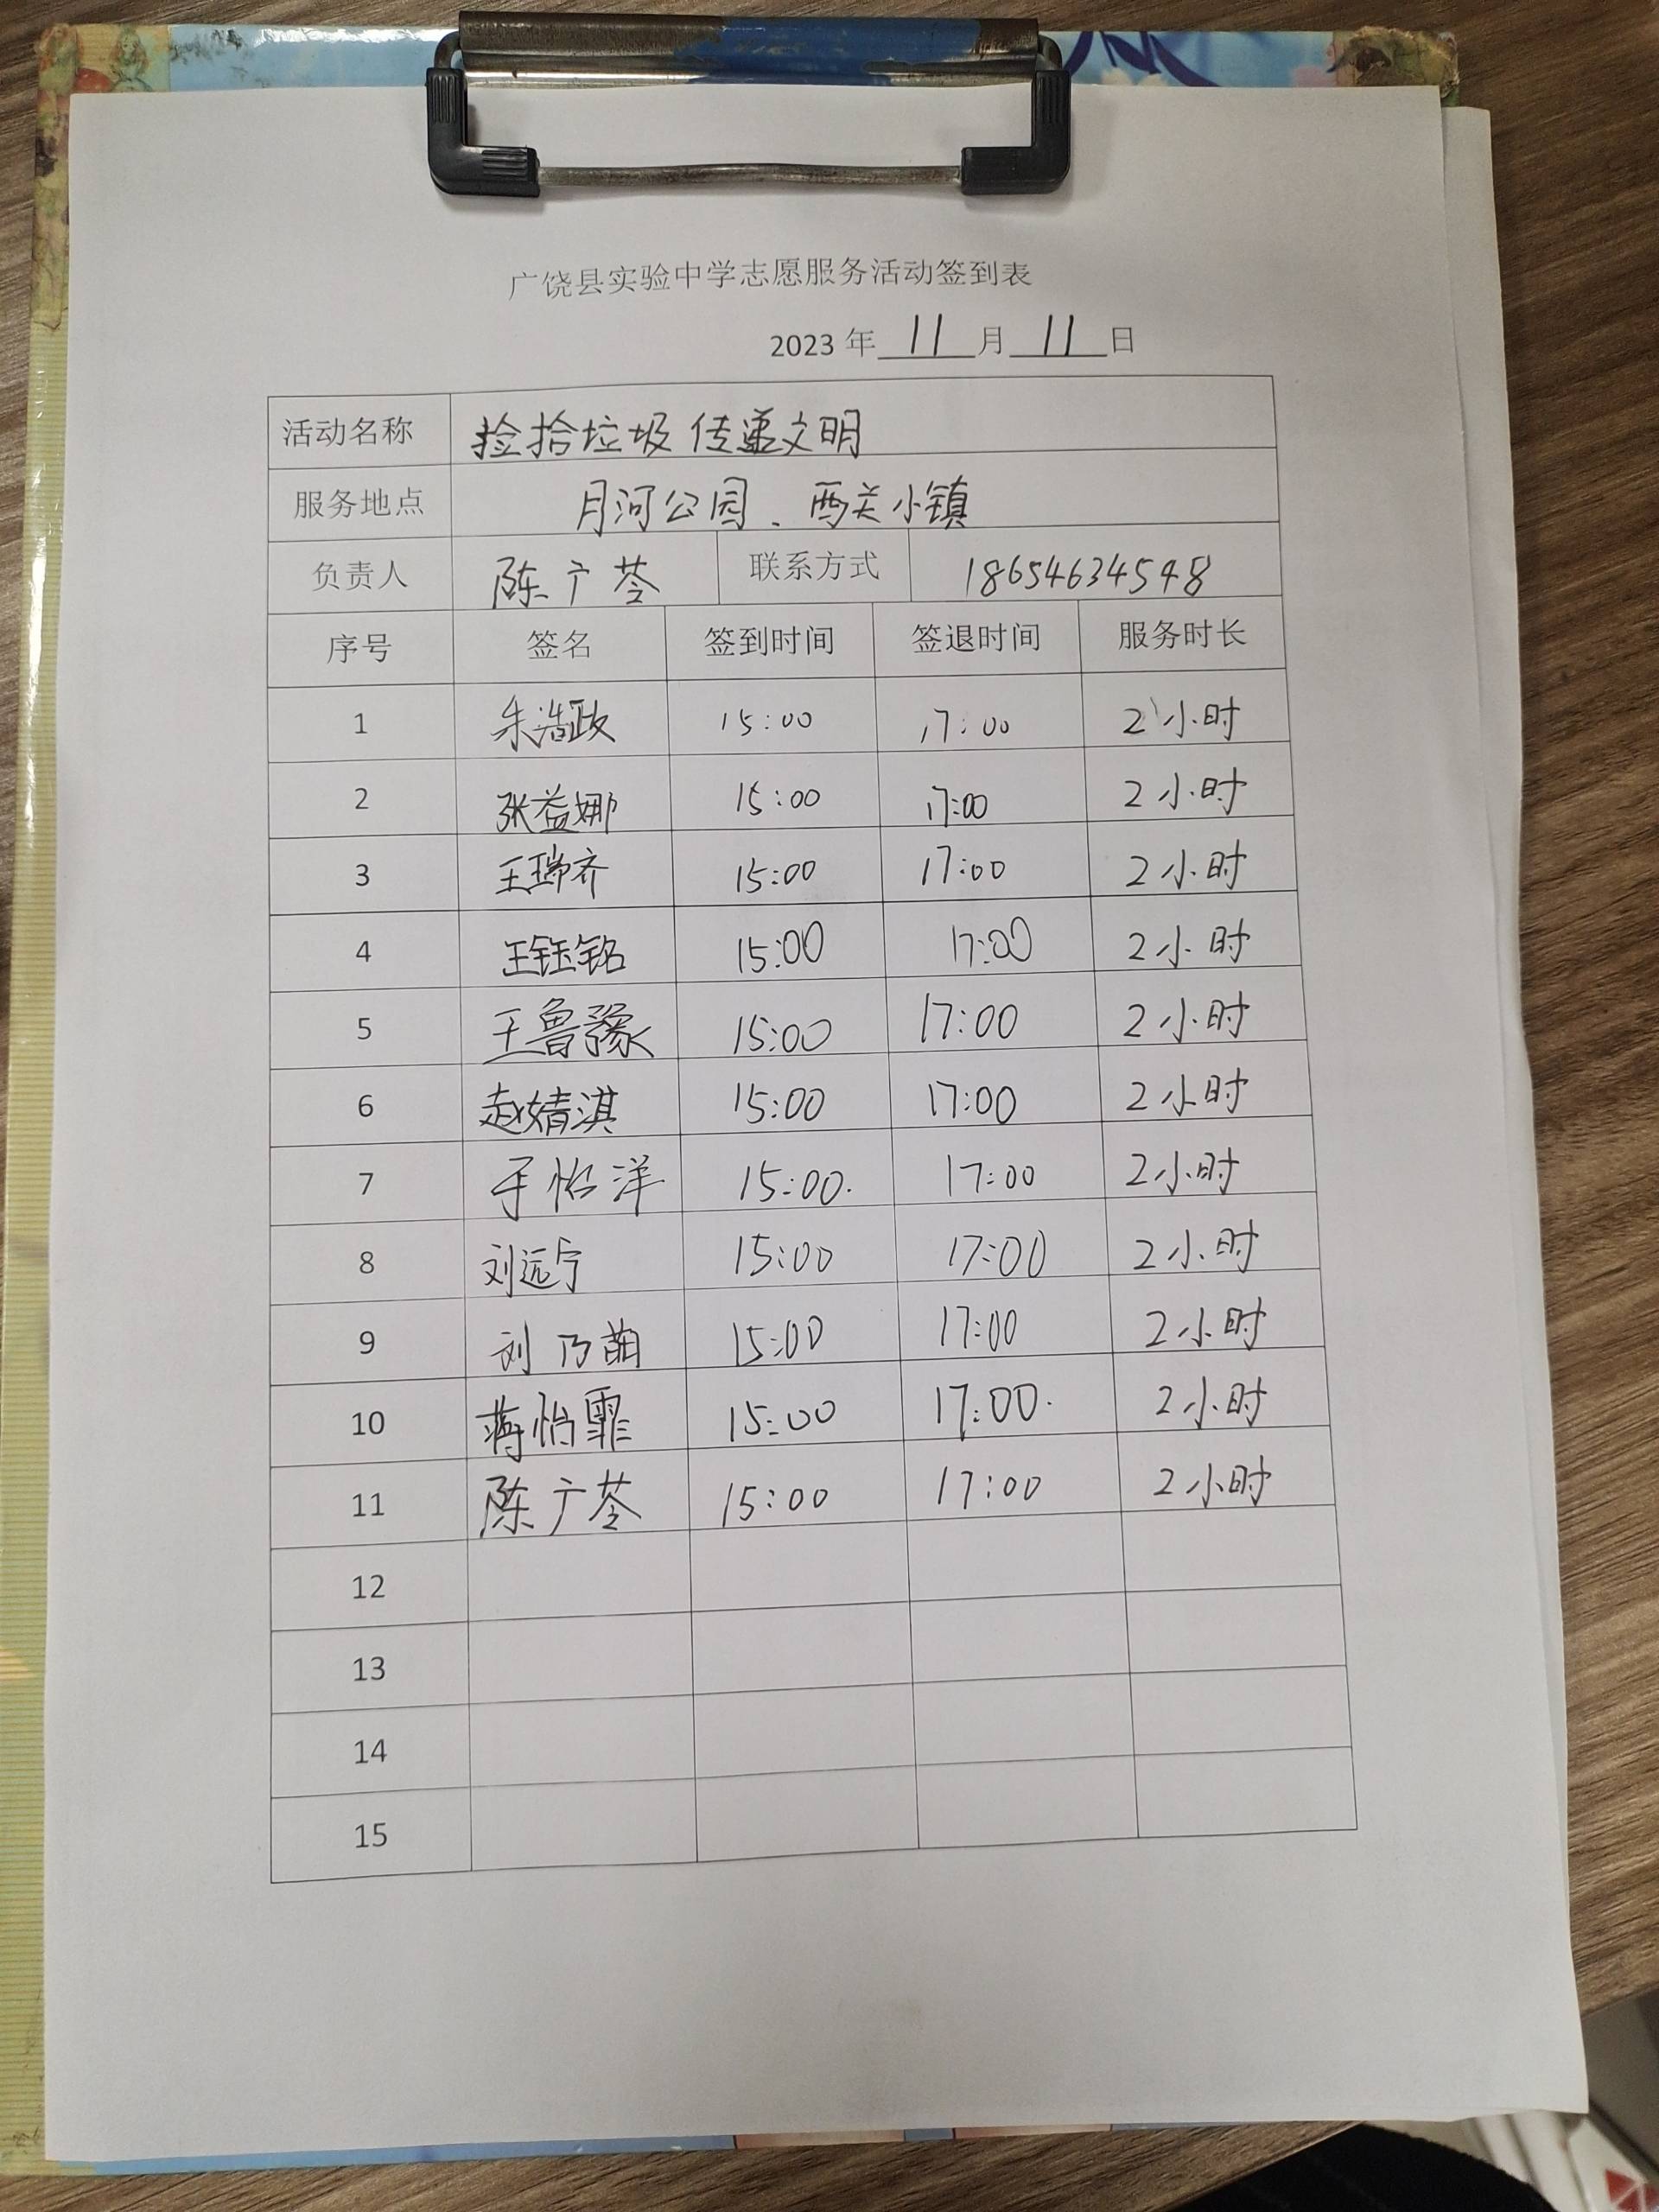 广饶县实验中学志愿服务活动签到表
2023 年 11 月 11 日
活动名称 捡拾垃圾 传递文明
服务地点 月河公园、西关小镇
负责人 陈广苓 联系方式 18654634548
序号 签名 签到时间 签退时间 服务时长
1 朱浩政 15:00 17:00 2小时
2 张益娜 15:00 17:00 2小时
3 王瑞齐 15:00 17:00 2小时
4 王钰铭 15:00 17:00 2小时
5 王鲁豫 15:00 17:00 2小时
6 赵婧淇 15:00 17:00 2小时
7 于怡洋 15:00. 17:00 2小时
8 刘远宁 15:00 17:00 2小时
9 刘乃萌 15:00 17:00 2小时
10 蒋怡霏 15:00 17:00. 2小时
11 陈广苓 15:00 17:00 2小时
12
13
14
15